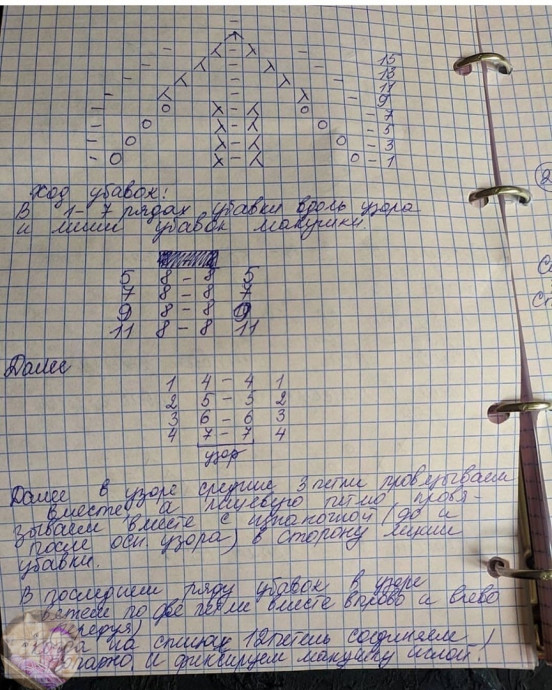 15
13
11
9
7
5
3
1
Ход убавок!
В 1-7 рядах убавки вдоль узора
и линии убавок макушки
5 8 - 8 5
7 8 - 8 7
9 8 - 8 9
11 8 - 8 11
Далее
1 4 - 4 1
2 5 - 5 2
3 6 - 6 3
4 7 - 7 4
узор
Далее в узоре средние 3 петли провязываем
вместе, а лицевую петлю провя-
зываем вместе с изнаночной (до и
после осн. узора) в сторону линии
убавки.
В последнем ряду убавок в узоре
по две петли вместе вправо и влево
на спицах 12 петель соединяем
и фиксируем макушку иглой!